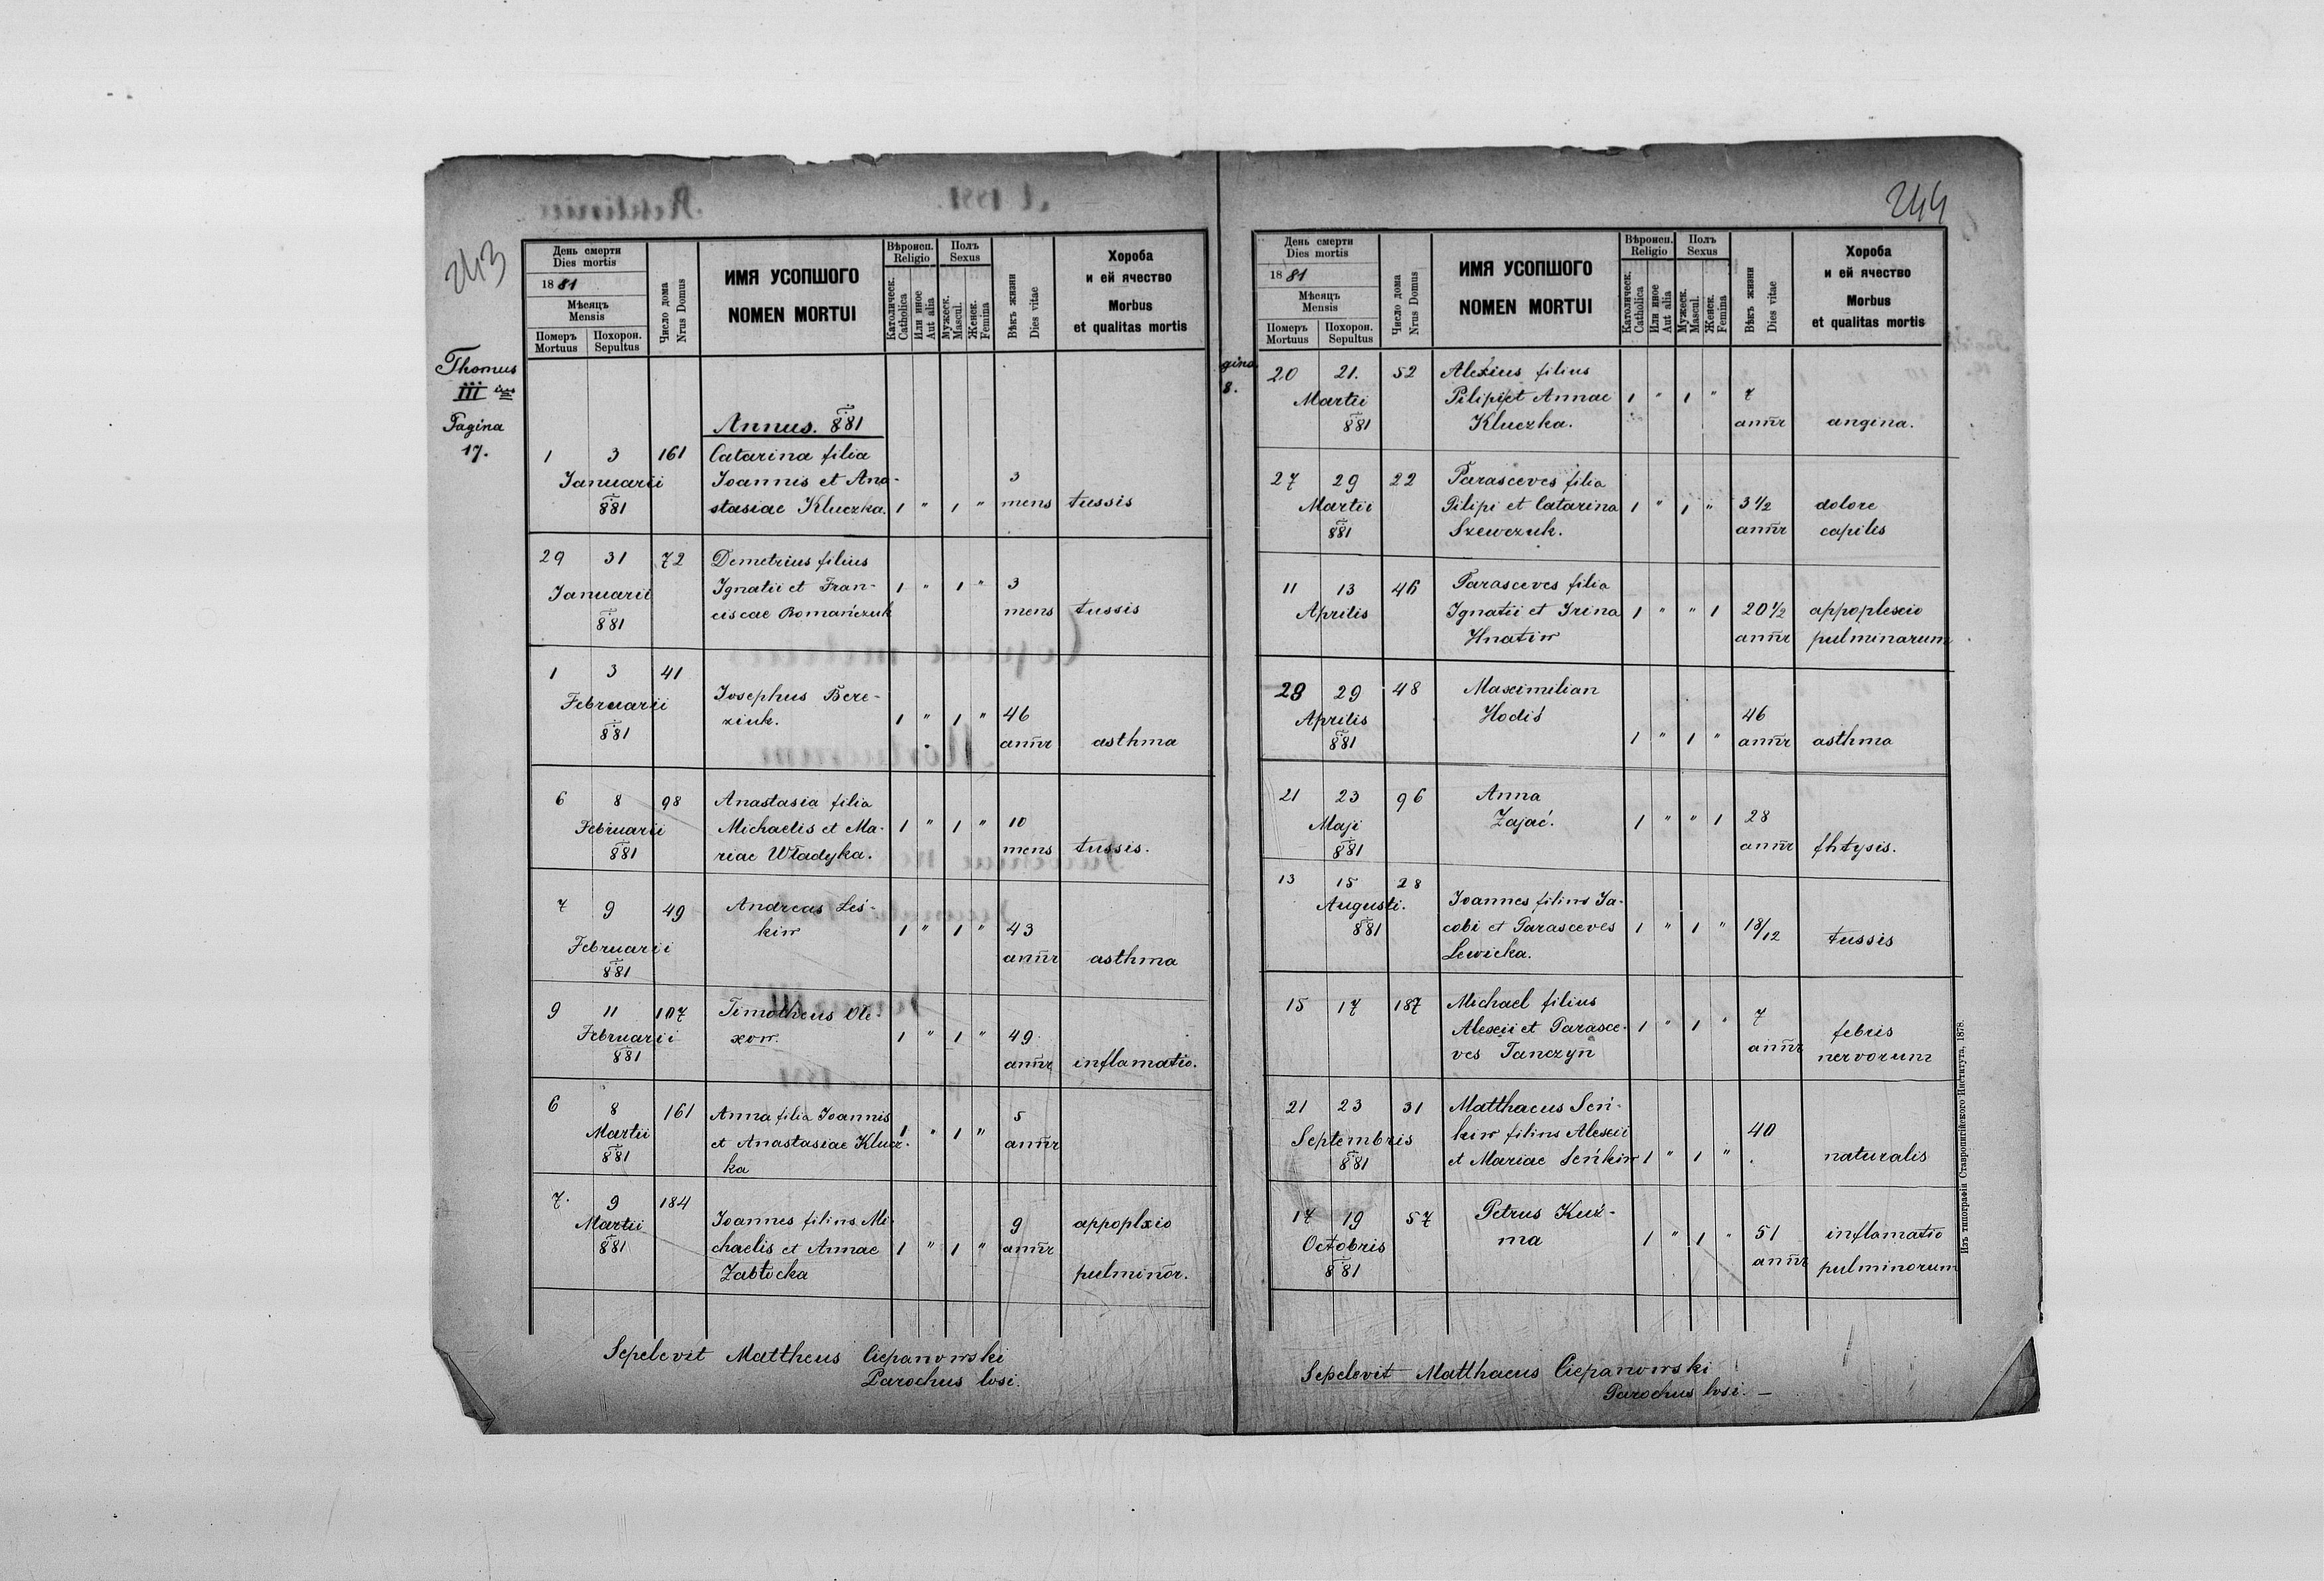 243
День смерти
Dies mortis
1881
Мѣсяцъ
Mensis
Померъ
Mortuus
Похорон.
Sepultus
Число дома
Nrus Domus
ИМЯ УСОПШОГО
NOMEN MORTUI
Вѣроисп.
Religio
Католическ.
Catholica
Или иное
Aut alia
Полъ
Sexus
Мужеск.
Mascul.
Женск.
Femina
Вѣкъ жизни
Dies vitae
Хороба
и ей ячество
Morbus
et qualitas mortis
Thomus
III ius
Pagina
17.
Annus. 881
1 3 161 Catarina filia
Januarii Joannis et Ana- 3
881 stasiae Kluczka. 1 " 1 " mens tussis
29 31 72 Demetrius filius
Januarii Ignatii et Fran- 1 " 1 " 3
881 ciscae Romańczuk mens tussis
1 3 41
Februarii Josephus Bere-
881 ziuk. 1 " 1 " 46
annor asthma
6 8 98 Anastasia filia
Februarii Michaelis et Ma- 1 " 1 " 10
881 riae Władyka. mens tussis.
7 9 49 Andreas Leś-
kiw 1 " 1 " 43
Februarii annor asthma
881
9 11 107 Timotheus Ole-
Februarii xow. 1 " 1 " 49
881 annor inflamatio.
6 8 161 Anna filia Joannis 5
Martii et Anastasiae Klucz- 1 " 1 " annor
881 ka
7. 9 184
Martii Joannes filius Mi- 9 appoplxio
881 chaelis et Annae 1 " 1 " annor
Zabłocka pulminor.
Sepelevit Mattheus Ciepanowski
Parochus losi.
244
День смерти
Dies mortis
1881
Мѣсяцъ
Mensis
Померъ
Mortuus
Похорон.
Sepultus
Число дома
Nrus Domus
ИМЯ УСОПШОГО
NOMEN MORTUI
Вѣроисп.
Religio
Католическ.
Catholica
Или иное
Aut alia
Полъ
Sexus
Мужеск.
Mascul.
Женск.
Femina
Вѣкъ жизни
Dies vitae
Хороба
и ей ячество
Morbus
et qualitas mortis
gina
8.
20 21. 52 Alexius filius
Martii Pilipi et Annae 1 " 1 " 7
881 Kluczka. annor angina.
27 29 22 Parasceves filia
Martii Pilipi et Catarina 1 " 1 " 3 1/2 dolore
881 Szewczuk. annor capitis
11 13 46 Parasceves filia
Aprilis Ignatii et Irina 1 " " 1 20 1/2 appoplexio
Hnatiw annor pulminarum
28 29 48 Maximilian
Aprilis Hodiś 46
881 1 " 1 " annor asthma
21 23 96 Anna
Maji Zajać. 1 " " 1 28
881 annor fhtysis.
13 15 28
Augusti. Joannes filius Ja-
881 cobi et Parasceves 1 " 1 " 18/12 tussis
Lewicka.
15 17 187 Michael filius
Alexii et Parasce- 1 " 1 " 7 febris
ves Tanczyn annor nervorum
21 23 31 Matthaeus Seń-
Septembris kiw filius Alexii 40
881 et Mariae Seńkiw 1 " 1 " . naturalis
17 19 57 Petrus Kuź-
Octobris ma 1 " 1 " 51 inflamatio
881 annor pulminorum
Sepelevit Matthaeus Ciepanowski
Parochus losi. —
Изъ типографіи Ставропигійского Института, 1878.